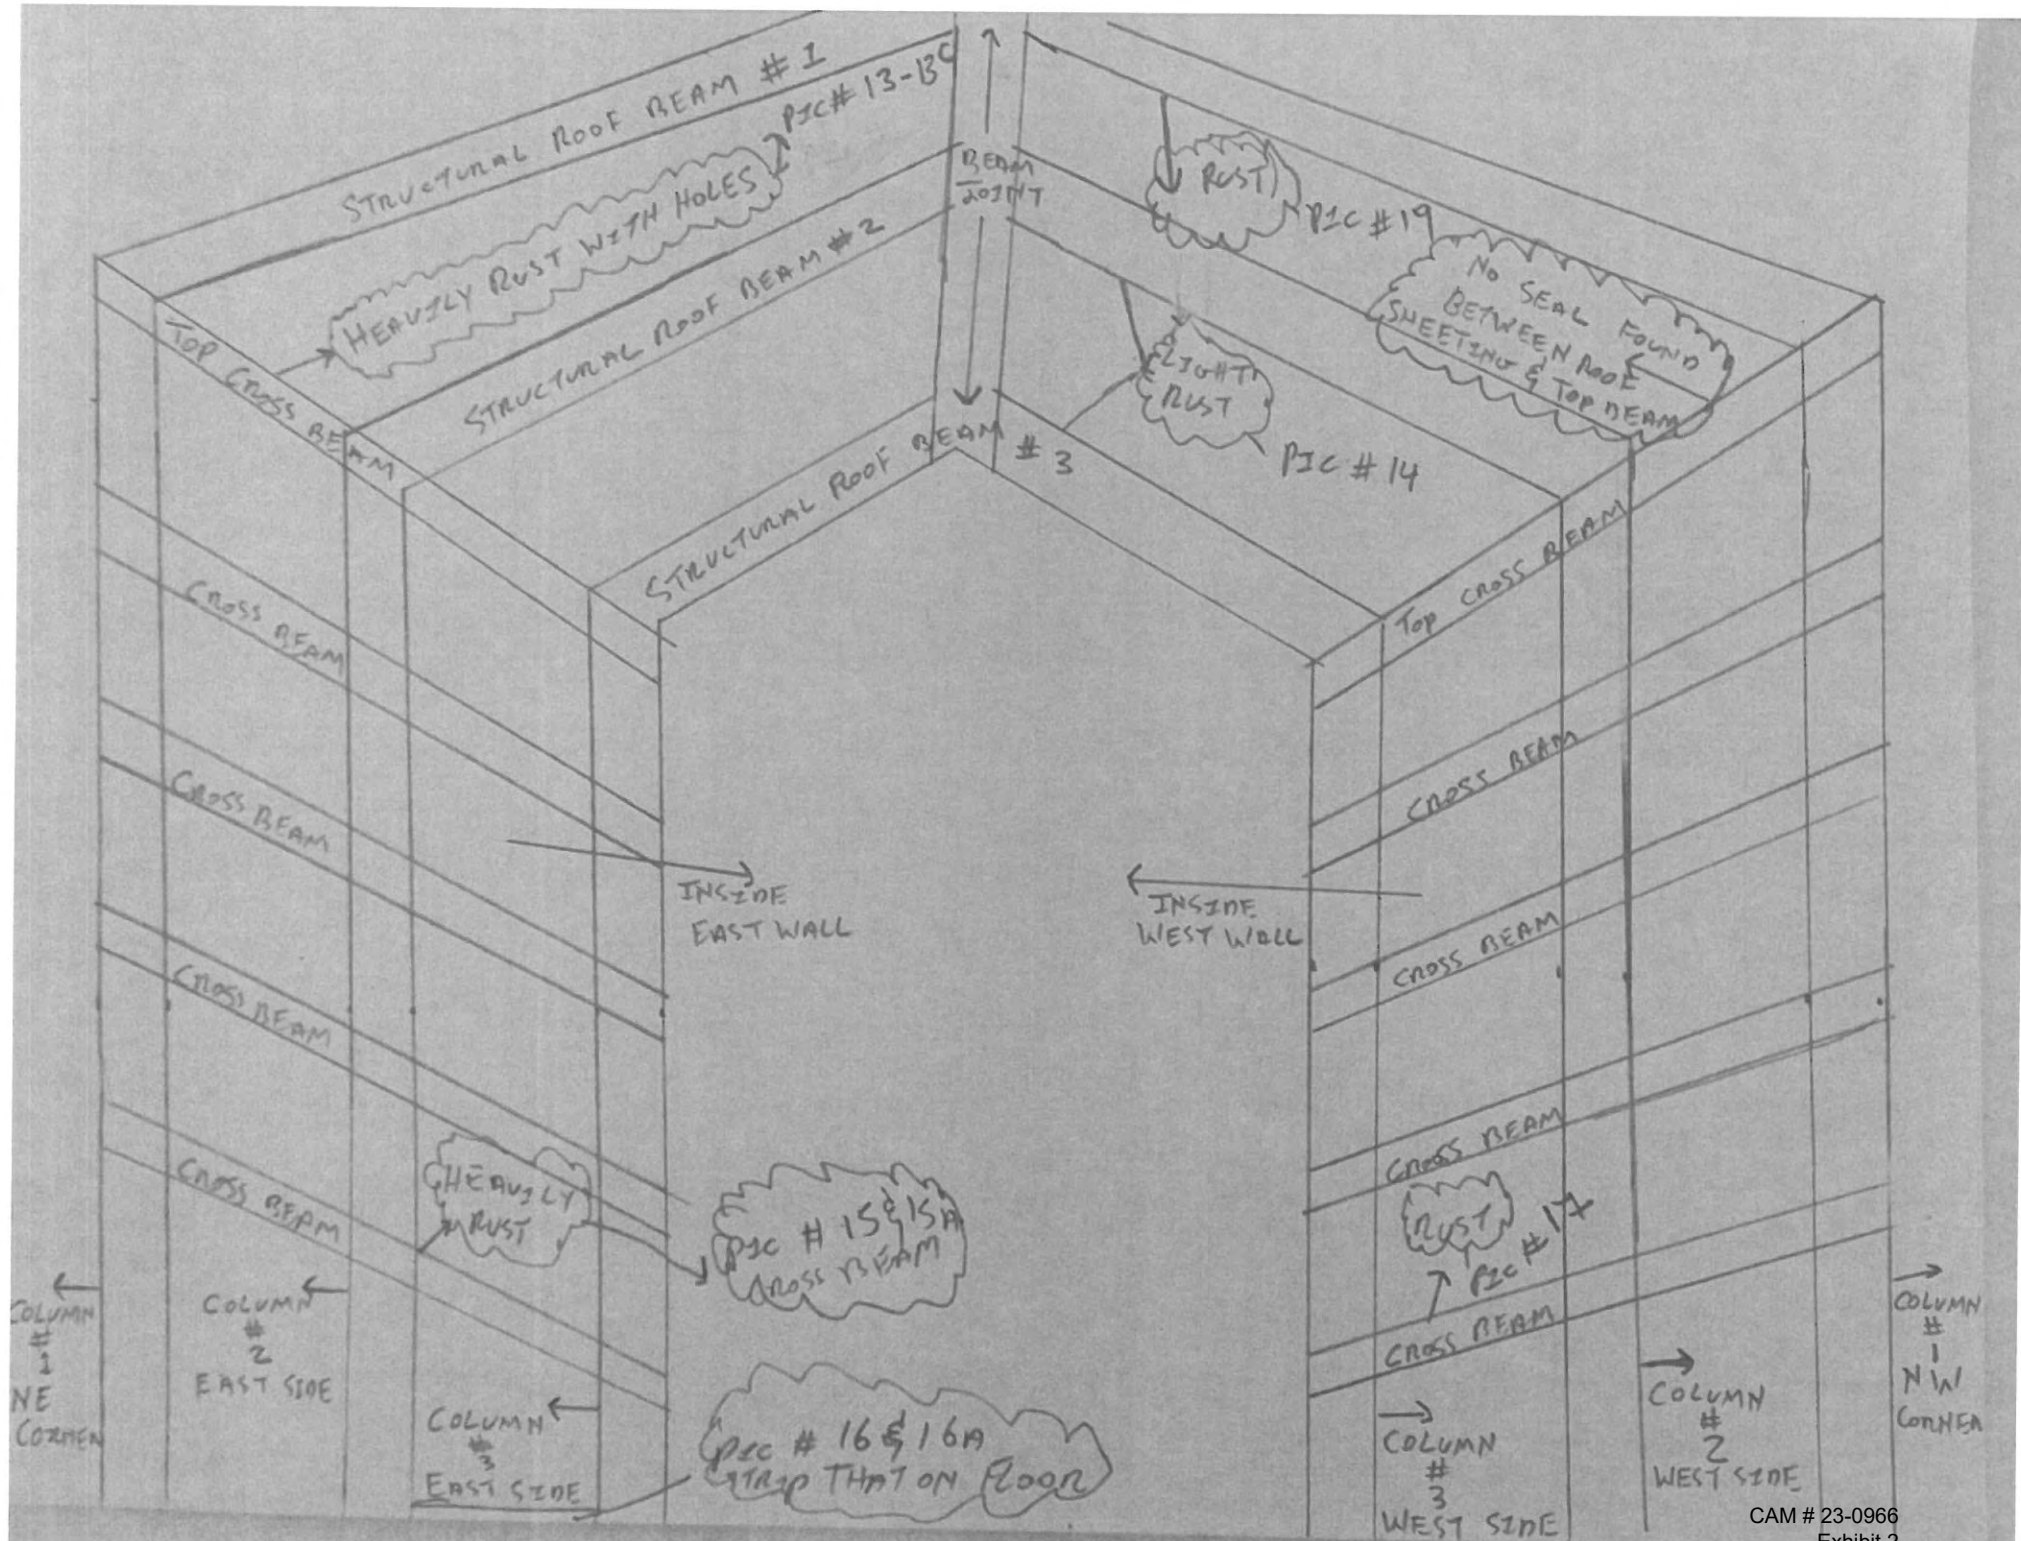 STRUCTURAL ROOF BEAM # 1
PIC# 13-13C
HEAVILY RUST WITH HOLES
STRUCTURAL ROOF BEAM # 2
BEAM
JOINT
RUST
PIC # 19
NO SEAL FOUND
BETWEEN ROOF
SHEETING & TOP BEAM
TOP CROSS BEAM
LIGHT
RUST
PIC # 14
STRUCTURAL ROOF BEAM # 3
TOP CROSS BEAM
CROSS BEAM
CROSS BEAM
CROSS BEAM
CROSS BEAM
INSIDE
EAST WALL
INSIDE
WEST WALL
CROSS BEAM
CROSS BEAM
CROSS BEAM
CROSS BEAM
HEAVILY
RUST
PIC # 15 & 15A
CROSS BEAM
RUST
PIC # 17
COLUMN
#
1
NE
CORNER
COLUMN
#
2
EAST SIDE
COLUMN
#
3
EAST SIDE
PIC # 16 & 16A
STRIP THAT ON FLOOR
COLUMN
#
3
WEST SIDE
COLUMN
#
2
WEST SIDE
COLUMN
#
1
NW
CORNER
CAM # 23-0966
Exhibit 2